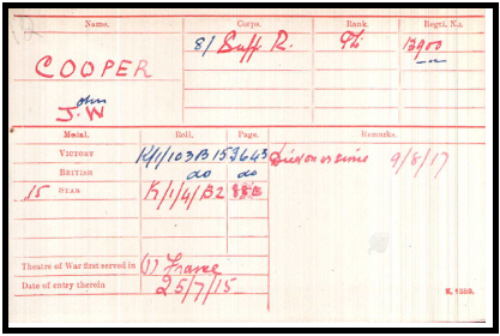 Name. Corps. Rank. Regtl. No.
8/ Suff. R. Pte 13900
COOPER
John
J.W
Medal. Roll. Page. Remarks.
VICTORY K/1/103B15 3643 9/8/17
BRITISH do do
15 STAR K/1/4/B2
Theatre of War first served in (1) France
Date of entry therein 25/7/15.
K. 1380.